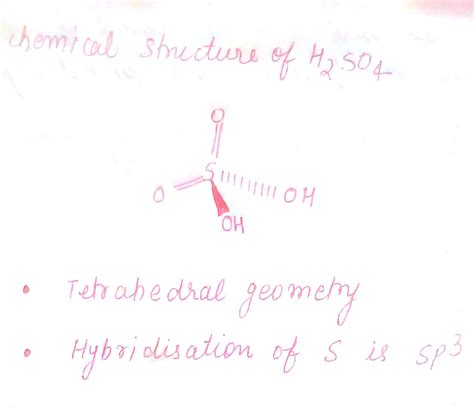 chemical structure of H2SO4
O
S
O
OH
OH
• Tetrahedral geometry
• Hybridisation of S is sp3